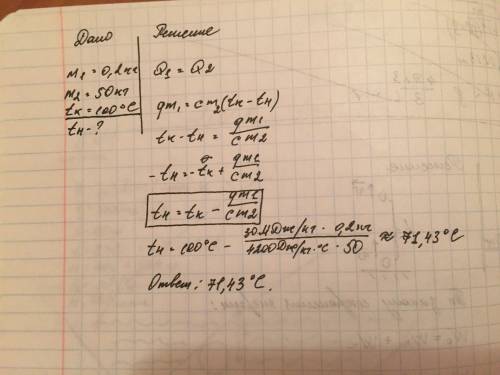 Дано
m₁ = 0,2кг
m₂ = 50кг
tк = 100°C
tн - ?
Решение
Q₁ = Q₂
qm₁ = cm₂(tк - tн)
tк - tн = qm₁ / cm₂
-tн = -tк + qm₁ / cm₂
tн = tк - qm₁ / cm₂
tн = 100°C - 30МДж/кг · 0,2кг / 4200Дж/кг·°C · 50 ≈ 71,43°C
Ответ: 71,43°C.